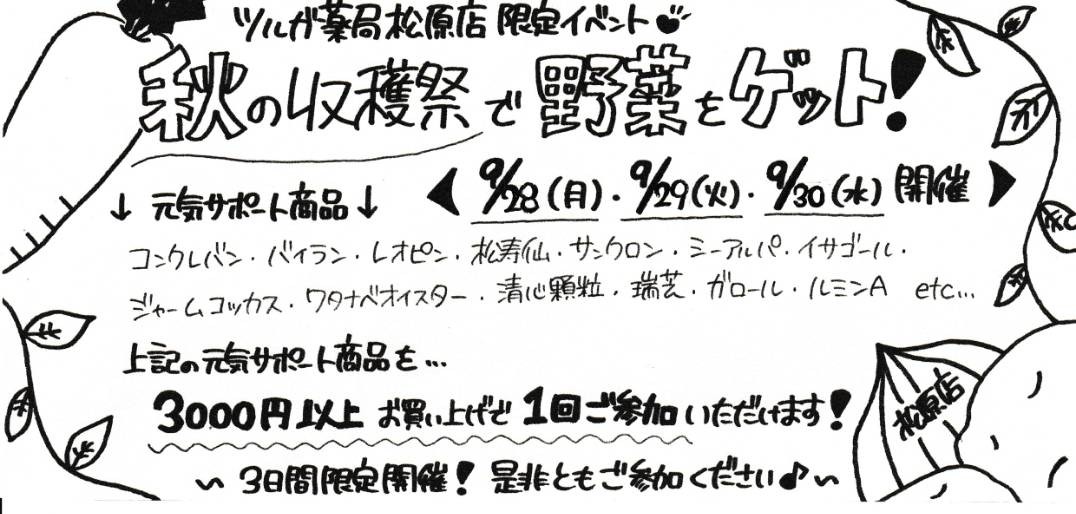 ツルガ薬局松原店 限定イベント
秋の収穫祭で野菜をゲット!
↓ 元気サポート商品 ↓
9/28(月)・9/29(火)・9/30(水) 開催
コンクレバン・バイラン・レオピン・松寿仙・サンクロン・ミーアルパ・イサゴール・
ジャームコッカス・ワタナベオイスター・清心顆粒・瑞芝・ガロール・ルミンA etc...
上記の元気サポート商品を...
3000円以上 お買い上げで 1回ご参加いただけます!
松原店
〜 3日間限定開催! 是非ともご参加ください♪〜